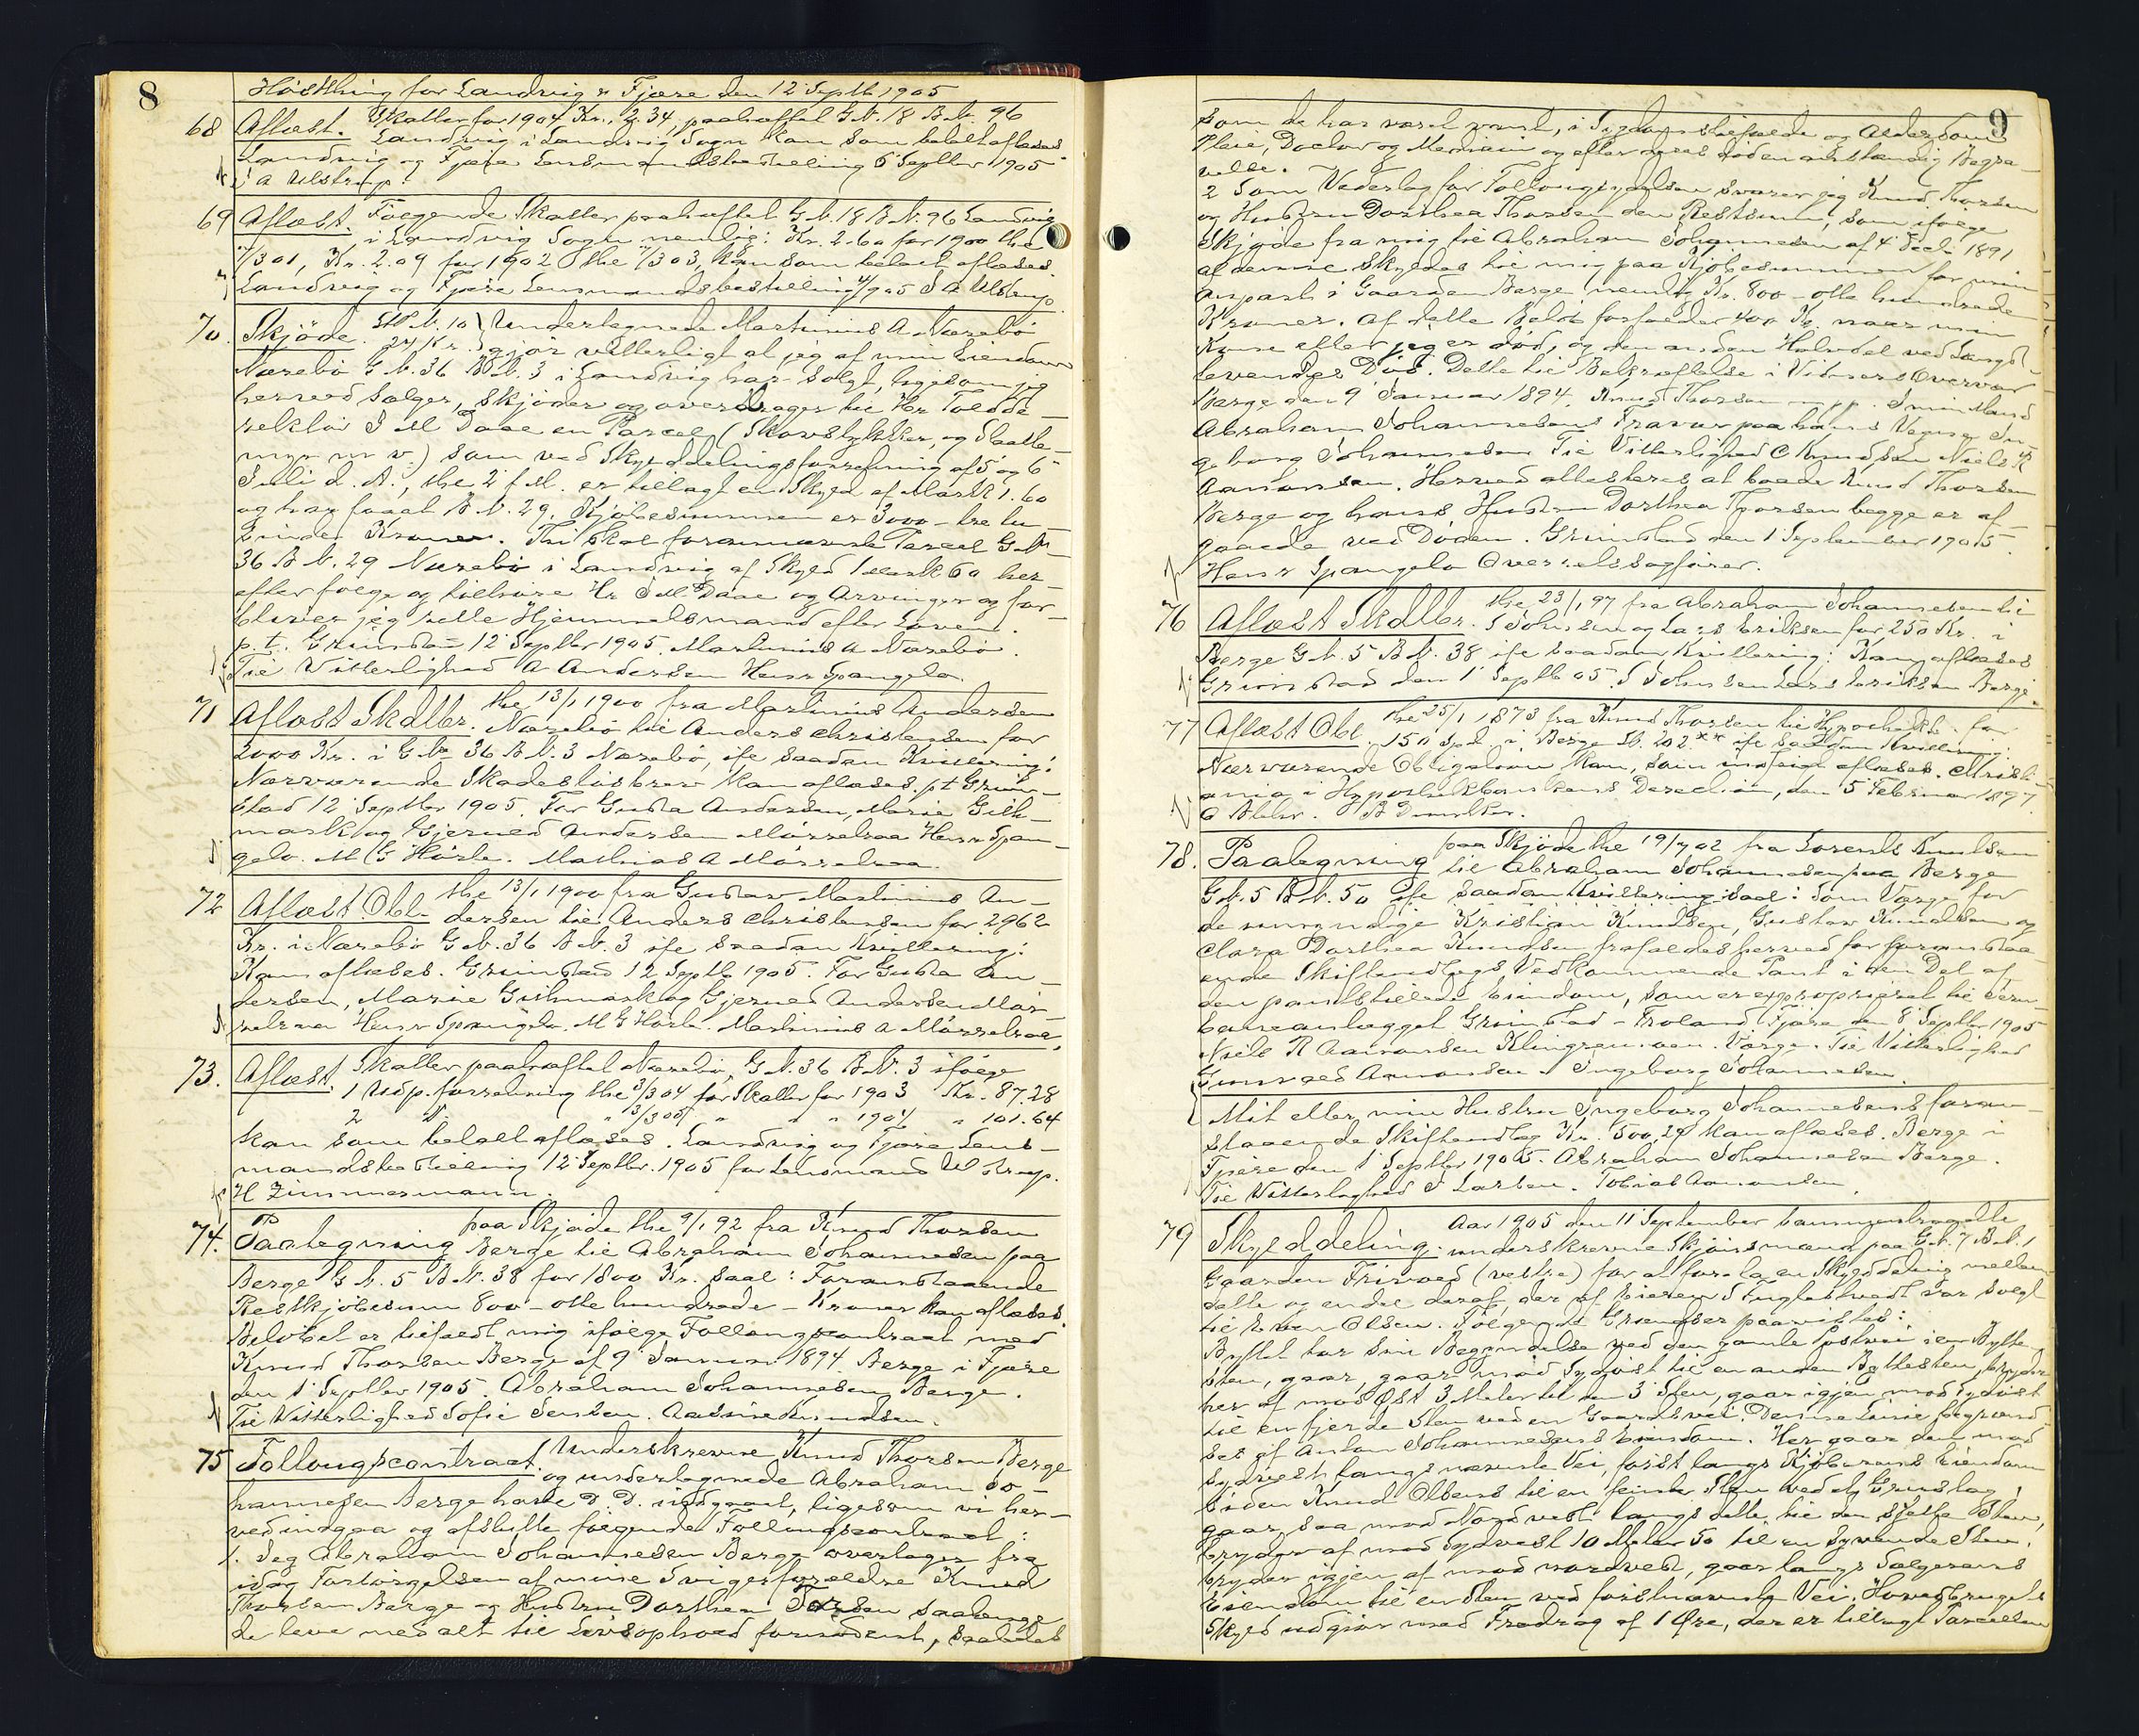 8
Høstthing for Landvig & Fjære den 12 Septb 1905
68 Aflæst. Skatter for 1904 Kr. 2.34 paahæftet G.N. 18 B.N. 96
Landvig i Landvig Sogn kan som betalt aflæses
Landvig og Fjære Lensmandsbestilling 6 Septbr 1905
J A Ulstrup.
69 Aflæst. Følgende Skatter paahæftet G.N. 18 B.N. 96 Landvig
i Landvig Sogn nemlig: Kr. 2.60 for 1900 thl
/3 01, Kr. 2.09 for 1902 thl /3 03, kan som betalt aflæses.
Landvig og Fjære Lensmandsbestilling /9 05 J A Ulstrup
70. Skjøde. St.P. N. 10 Undertegnede Martinius A Næsebø
24 Kr. gjør vitterligt at jeg af min Eiendom
Næsebø G.N. 36 B.N. 3 i Landvig har solgt, ligesom jeg
herved sælger, skjøder og overdrager til Hr Told
rektør J M Daae en Parcel (Skovstykke, og Slaatte
myr m v.) som ved Skylddelingsforretning af 5 og 6
Juli d. A., thl 2 f M. er tillagt en Skyld af Mark 1.60
og har faaet B.N. 29. Kjøbesummen er 3000 - tre tu-
sinde Kroner. Thi skal forannævnte Parcel G.N.
36 B.N. 29 Næsebø i Landvig af Skyld 1 Mark 60 her-
efter følge og tilhøre Hr J M. Daae og Arvinger og for-
bliver jeg rette Hjemmelsmand efter Loven.
p.t. Grimstad 12 Septbr 1905. Martinius A Næsebø.
Til Vitterlighed A Andersen Henr Spangelo.
71 Aflæst Skdlbr. thl 13/1 1900 fra Martinius Andersen
Næsebø til Anders Christensen for
2000 Kr. i G.N. 36 B.N. 3 Næsebø, ifl saadan Kvittering:
Nærværende Skadesløsbrev kan aflæses. p.t Grim-
stad 12 Septbr 1905. For Gusta Andersen, Marie Gith-
mark og Gjerued Andersen Mørretraa Henr Span-
gelo. M G Hørte. Mathias A Mørretraa.
72 Aflæst Obl. thl 13/1 1900 fra Gustav Martinius An-
dersen til Anders Christensen for 2962
Kr. i Næsebø G.N. 36 B.N. 3 ifl saadan Kvittering:
Kan aflæses. Grimstad 12 Septb 1905. For Gusta An
dersen, Marie Githmark og Gjerued Andersen Mør-
retraa Henr Spangelo. M G Hørte. Martinius A Mørretraa.
73. Aflæst. Skatter paahæftet Næsebø, G.N. 36 B.N. 3 ifølge
1 Udp. forretning thl 3/3 04 for Skatter for 1903 Kr. 87.28
2 D. " 3/3 05 " " " 1904 " 101.64
kan som betalt aflæses. Landvig og Fjære Lens-
mandsbestilling 12 Septbr. 1905 for Lensmand Ulstrup.
H Zimmermann.
74. Paategning paa Skjøde thl 9/1 92 fra Knud Thorsen
Berge til Abraham Johannesen paa
Berge G.N. 5 B.N. 38 for 1800 Kr. saal: Foranstaaende
Restkjøbesum 800 - otte hundrede - Kroner kan aflæses.
Beløbet er tilfaldt mig ifølge Follougscontract med
Knud Thorsen Berge af 9 Januar 1894. Berge i Fjære
den 1 Septbr 1905. Abraham Johannesen Berge.
Til Vitterlighed Sofie Jensen. Knudsen.
75 Follougscontract. Underskrevne Knud Thorsen Berge
og undertegnede Abraham Jo-
hannesen Berge have D. D. indgaaet, ligesom vi her-
ved indgaa og afslutte følgende Follougscontract:
1. Jeg Abraham Johannesen Berge overtager fra
idag Forsørgelsen af mine Svigerforældre Knud
Thorsen Berge og Hustru Dorthea Torsen saalænge
de leve med alt til Livsophold fornødent, saaledes
9
som de har været vant, i Sygdomstilfælde og Alderdom
Pleie, Doctor og Medicin og efter deres Død en anstændig Begra-
velse.
2 Som Vederlag for Follougsydelsen svarer jeg Knud Thorsen
og Hustru Dorthea Thorsen den Restsum, som ifølge
Skjøde fra mig til Abraham Johannesen af 4 Decb. 1891
af denne skyldes til mig paa Kjøbesummen for min
Anpart i Gaarden Berge nemlig Kr. 800 - otte hundrede
Kroner. Af dette Beløb forfalder 400 Kr. naar min
Kone eller jeg er død, og den anden Halvdel ved Længst-
levendes Død. Dette til Bekræftelse i Vidners Overvær
Berge den 9 Januar 1894. Knud Thorsen m.p.p. I min Mand
Abraham Johannesens Fravær paa hans Vegne In-
geborg Johannesen Til Vitterlighed C Knudsen Niels R
Aanonsen. Herved attesteres at baade Knud Thorsen
Berge og hans Hustru Dorthea Thorsen begge er af-
gaaede ved Døden. Grimstad den 1 September 1905.
Henr Spangelo Overretssagfører.
76 Aflæst Skdlbr. thl 23/1 97 fra Abraham Johannesen til
S Johnsen og Lars Eriksen for 250 Kr. i
Berge G.N. 5 B.N. 38 ifl saadan Kvittering: Kan aflæses
Grimstad den 1 Septb 05. S Johnsen Lars Eriksen Berge.
77 Aflæst Obl. thl 25/1 1873 fra Knud Thorsen til Hypothekb. for
150 Spd. i Berge Lb. 202 ifl saadan Kvittering:
Nærværende Obligation kan, som indfriet aflæses. Christi
ania i Hypothekbankens Direction, den 5 Februar 1897
78. Paategning paa Skjøde thl 19/7 02 fra Lorents Knutsen
til Abraham Johannesen paa Berge
G.N. 5 B.N. 50 ifl saadan Kvittering saal: Som Værge for
de umyndige Kristian Knudsen, Gustav Knudsen og
Clara Dorthea Knudsen frafaldes herved for foranstaa
ende Skiftendlægs Vedkommende Pant i den Del af
den pantstillede Eiendom, som er exproprieret til Jern
baneanlægget Grimstad - Froland. Fjære den 8 Septbr 1905
Niels R Aanonsen Klingremoen. Værge. Til Vitterlighed
Aanonsen. Ingeborg Johannesen.
Mit eller min Hustru Ingeborg Johannesens foran
staaende Skiftendlæg Kr. 500,29 kan aflæses. Berge i
Fjære den 1 Septbr 1905. Abraham Johannesen Berge.
Til Vitterlighed J Larsen. Tobias Aanonsen.
79 Skylddeling. Aar 1905 den 11 September sammentraadte
underskrevne Skjønsmænd paa G.N. 7 B.N. 1
Gaarden Frivold (vestre) for at foreta en Skylddeling mellem
dette og endel deraf, der af Eieren S Fuglestvedt var solgt
til Olsen. Følgende Grændser paavistes:
Byttet tar sin Begyndelse ved den gamle Postvei i en Bytte
sten, gaar, gaar mod Sydøst til en anden Byttesten, bryder
her af mod Øst 3 Meter til den 3 Sten, gaar igjen mod Sydøst
til en fjerde Sten ved en Gaardsvei. Denne Linie begrænd-
ses af Anton Johannesens Eiendom. Her gaar den mod
Sydvest langs nævnte Vei, først langs Kjøberens Eiendom
siden Knud Olsens til en femte Sten ved et Grustag,
gaar saa mod Nordvest langs dette til den sjette Sten,
bryder af mod Sydvest 10 Meter 50 til en syvende Sten,
bryder igjen af mod nordvest, gaar langs Sælgerens
Eiendom til en Sten ved førstnævnte Vei. Hovedbrugets
Skyld udgjør med Fradrag af 1 Øre, der er tillagt Parcellen